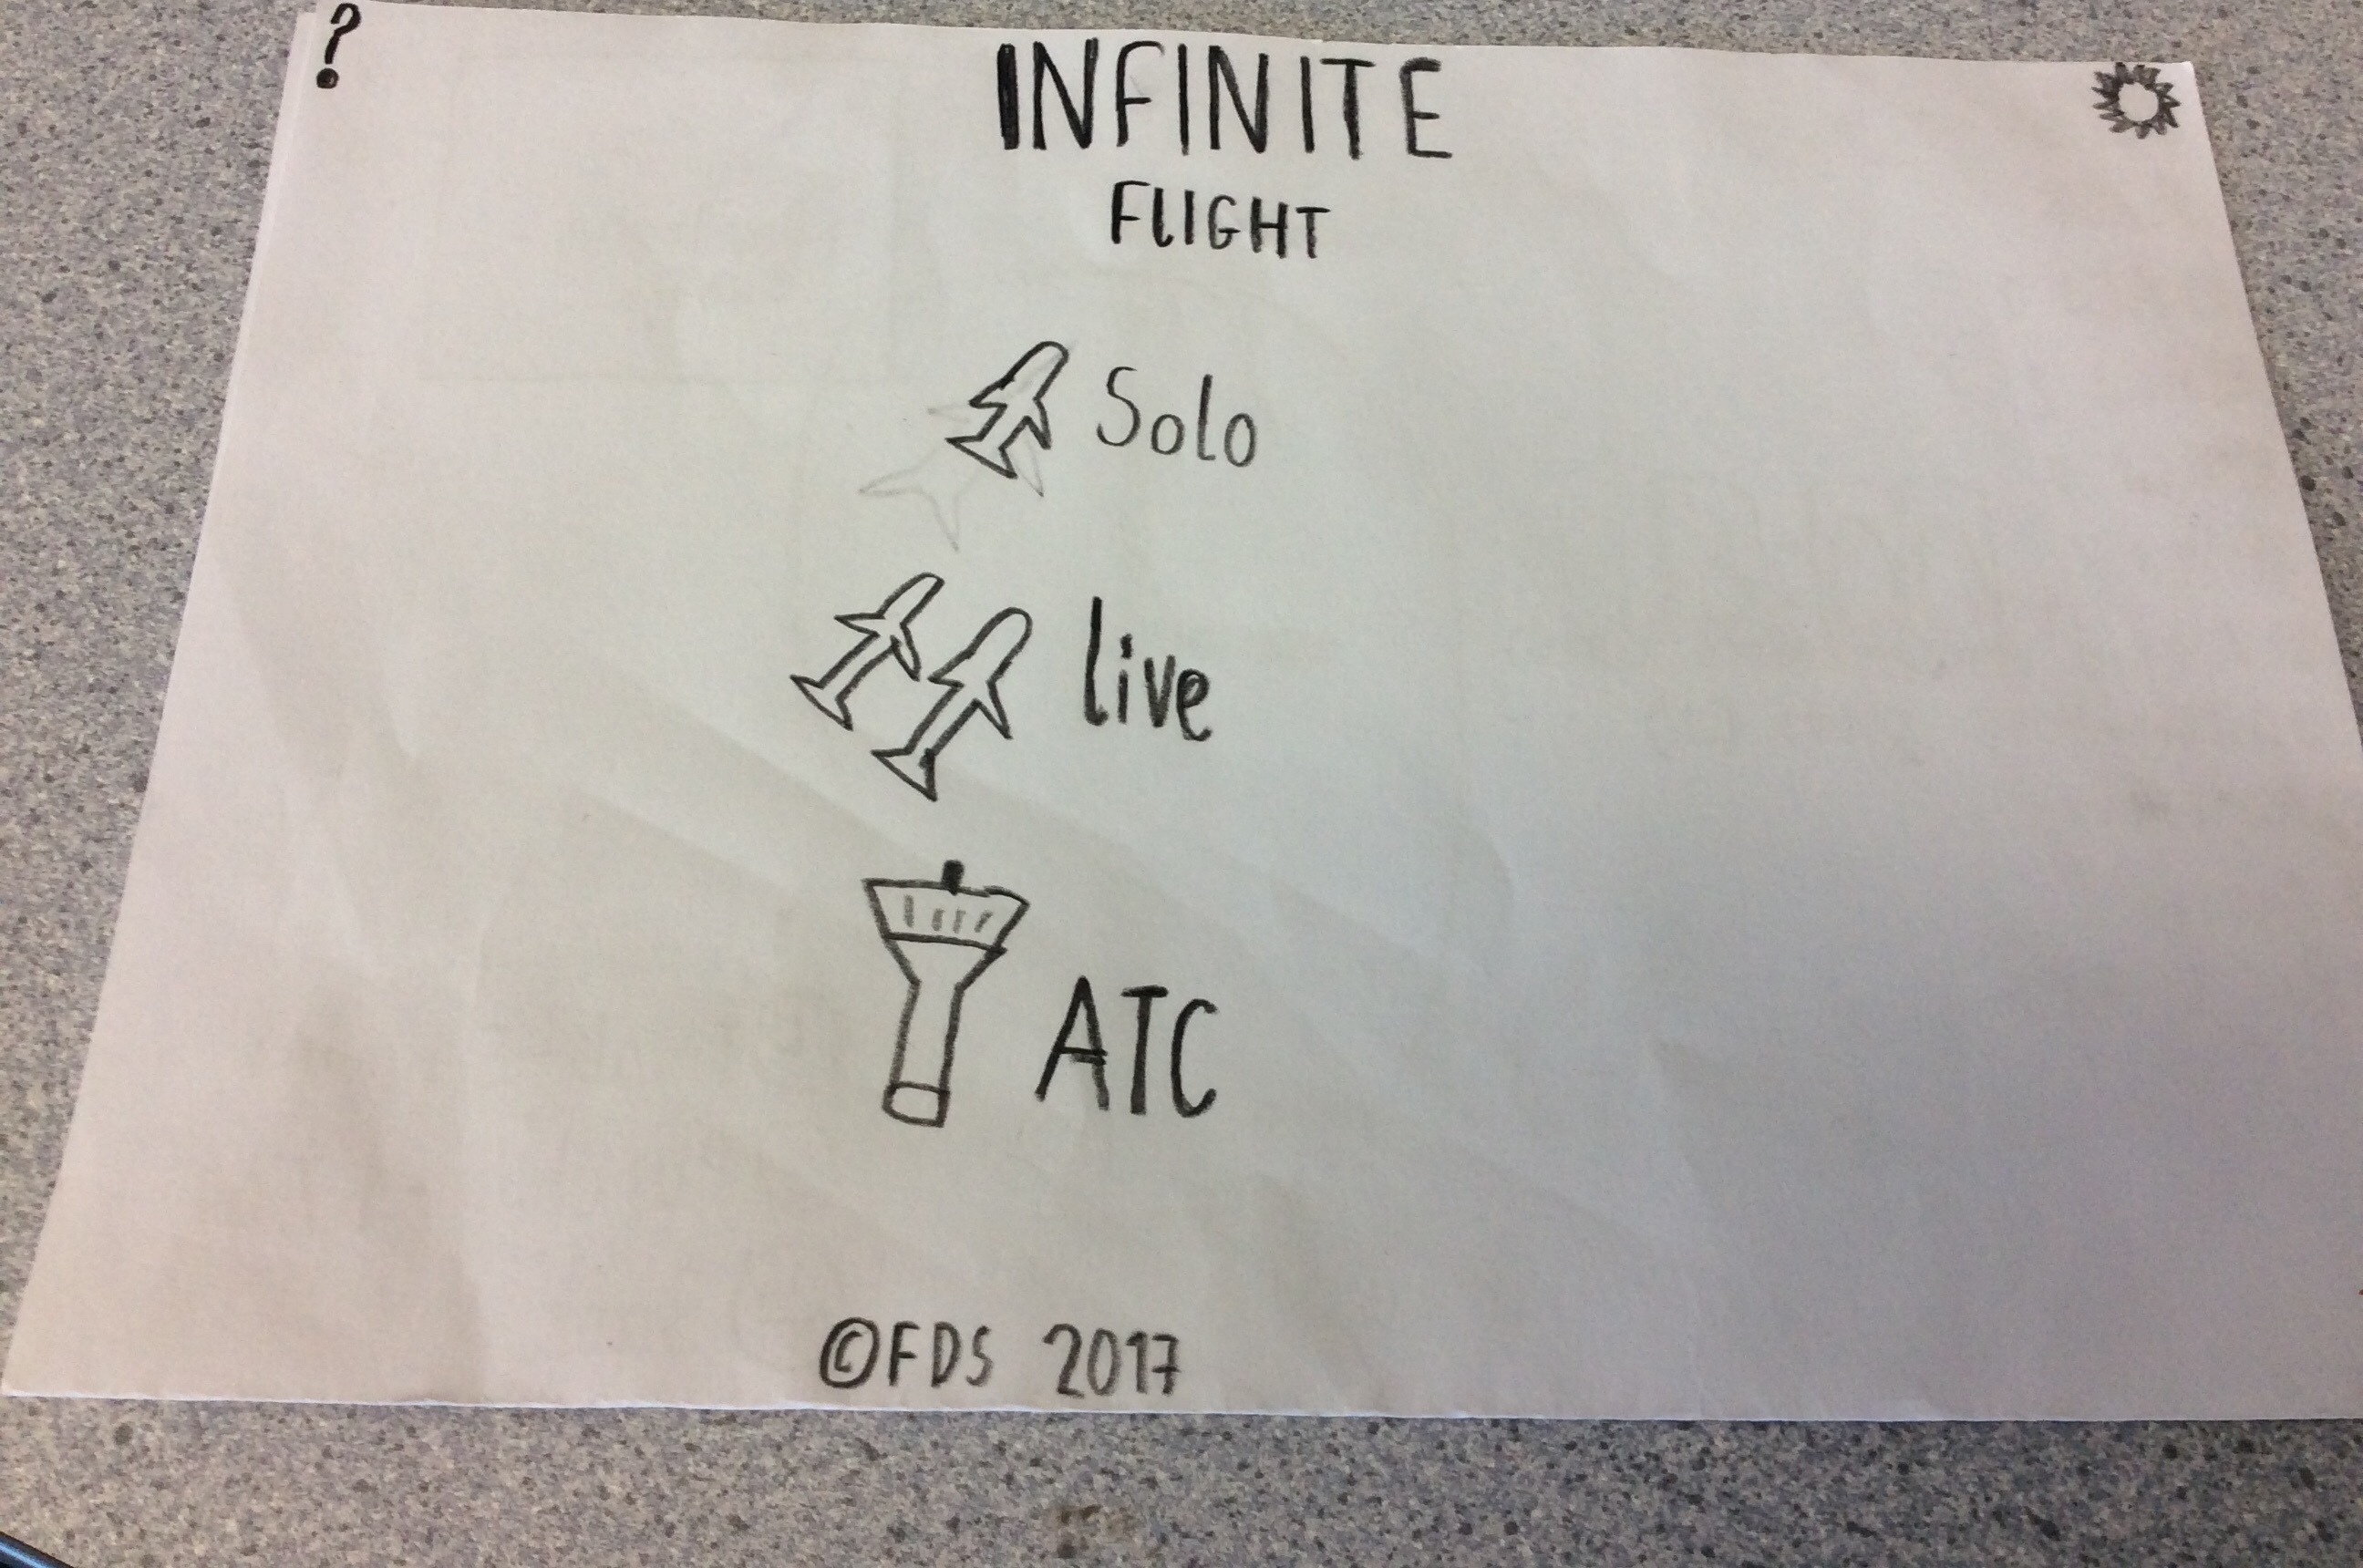 ?
INFINITE
FLIGHT
Solo
live
ATC
©FDS 2017